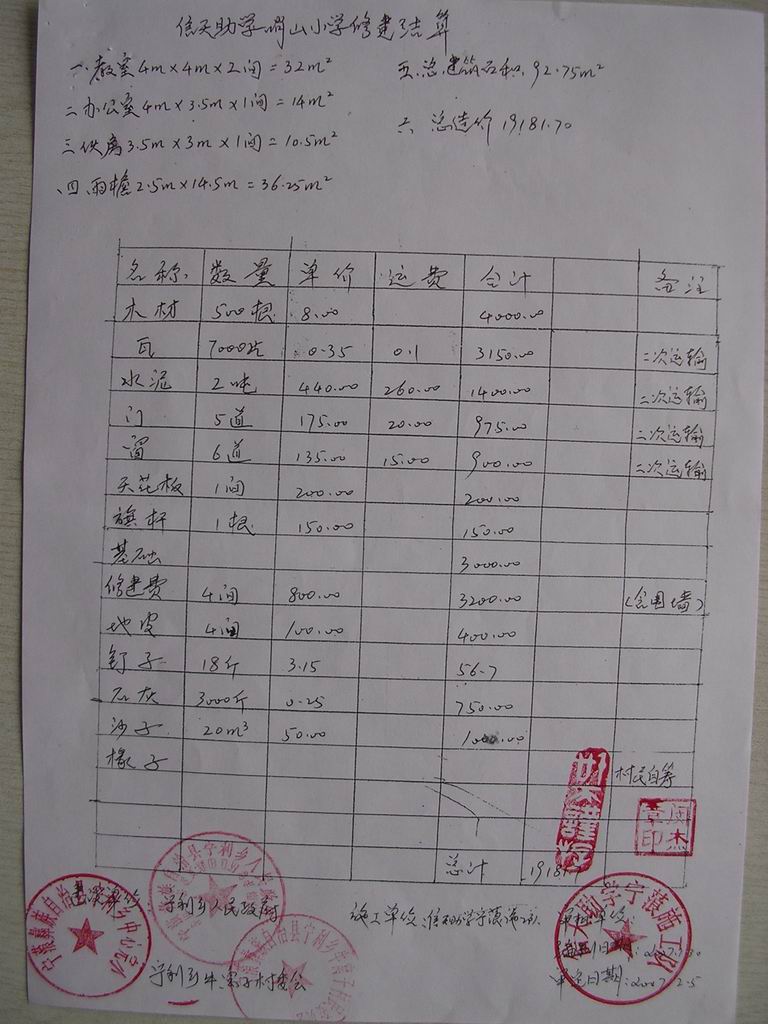 信天助学岗山小学修建结算
一.教室4m×4m×2间=32m²
五.总建筑面积.92.75m²
二.办公室4m×3.5m×1间=14m²
六.总造价19181.70
三.伙房3.5m×3m×1间=10.5m²
四.雨檐2.5m×14.5m=36.25m²
名称 数量 单价 运费 合计 备注
木材 500根 8.00 4000.00
瓦 7000片 0.35 0.1 3150.00 二次运输
水泥 2吨 440.00 260.00 1400.00 二次运输
门 5道 175.00 20.00 975.00 二次运输
窗 6道 135.00 15.00 900.00 二次运输
天花板 1间 200.00 200.00
旗杆 1根 150.00 150.00
基础 3000.00
修建费 4间 800.00 3200.00 (含围墙)
地皮 4间 100.00 400.00
钉子 18斤 3.15 56.7
石灰 3000斤 0.25 750.00
沙子 20m³ 50.00 1000.00
椽子 村民自筹
总计 19181.
建设单位
宁利乡人民政府
施工单位:信天助学宁蒗施工队
日期:2007.
日期:2007.2.5
宁利乡牛 子村委会
宁蒗彝族自治县
县宁利乡人民政府
彝族自治县宁利乡牛
助学宁蒗施工队
杰
印
章